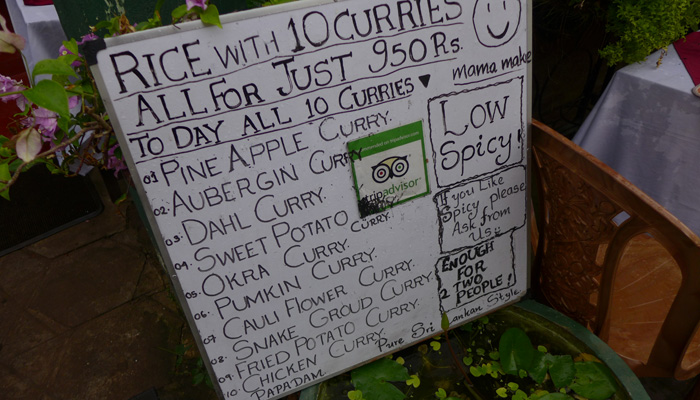 RICE WITH 10 CURRIES
ALL FOR JUST 950 Rs.
TO DAY ALL 10 CURRIES
mama make
01. PINE APPLE CURRY.
02. AUBERGIN CURRY
03. DAHL CURRY.
04. SWEET POTATO CURRY.
05. OKRA CURRY.
06. PUMKIN CURRY.
07. CAULI FLOWER CURRY.
08. SNAKE GROUD CURRY.
09. FRIED POTATO CURRY.
10. CHICKEN CURRY.
PAPADAM
tripadvisor
LOW
Spicy!
If you Like
Spicy please
Ask from
Us
ENOUGH
FOR
2 TWO
PEOPLE!
Pure Sri Lankan Style